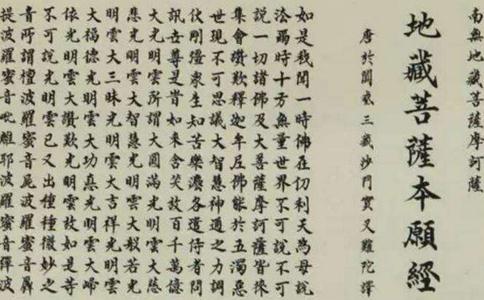 南無地藏菩薩摩訶薩
地藏菩薩本願經
唐於闐國三藏沙門實叉難陀譯
如是我聞一時佛在忉利天為母說
法爾時十方無量世界不可說不可
說一切諸佛及大菩薩摩訶薩皆來
集會讚歎釋迦牟尼佛能於五濁惡
世現不可思議大智慧神通之力調
伏剛彊眾生知苦樂法各遣侍者問
訊世尊是時如來含笑放百千萬億
大光明雲所謂大圓滿光明雲大慈
悲光明雲大智慧光明雲大般若光
明雲大三昧光明雲大吉祥光明雲
大福德光明雲大功德光明雲大歸
依光明雲大讚歎光明雲放如是等
不可說光明雲已又出種種微妙之
音所謂檀波羅蜜音尸波羅蜜音羼
提波羅蜜音毗離耶波羅蜜音禪波